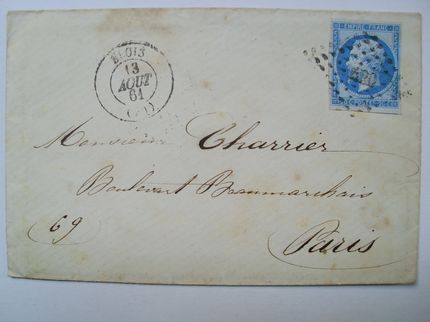 BLOIS
13
AOUT
61
EMPIRE FRANC.
20 C. POSTES 20 C.
Monsieur Charrier
Boulevart Beaumarchais
69
Paris